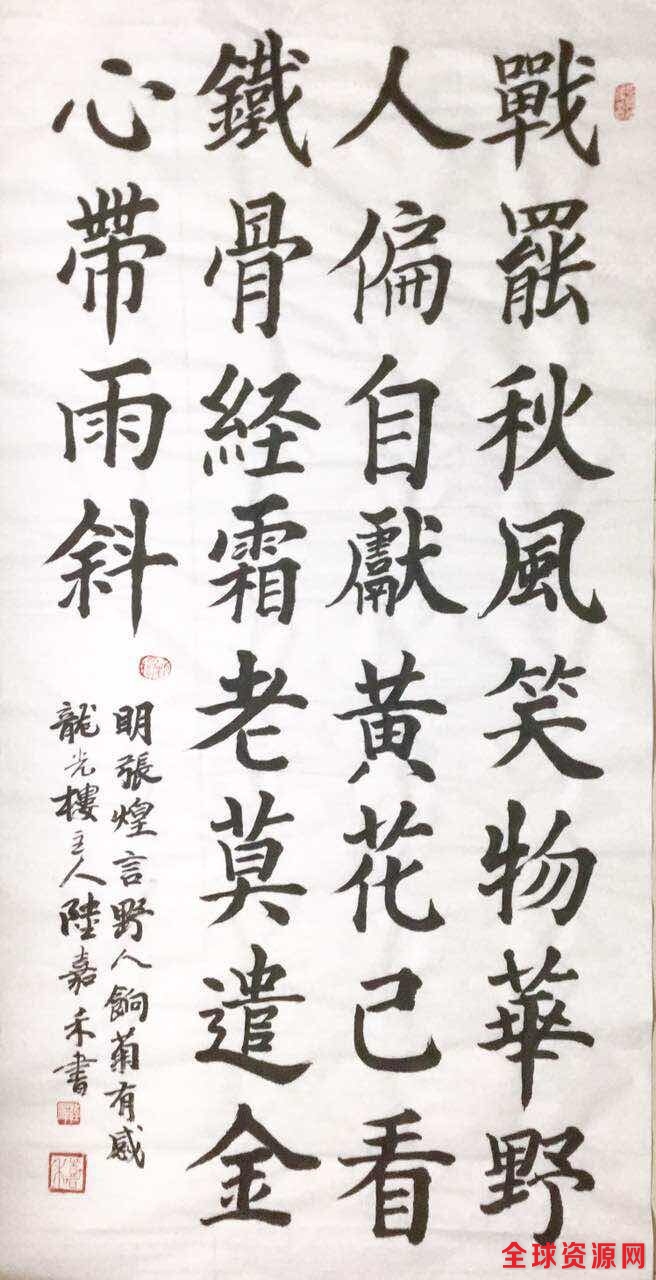 戰罷秋風笑物華野
人偏自獻黃花已看
鐵骨経霜老莫遣金
心帶雨斜
明張煌言野人餉菊有感
龍光樓主人陸嘉禾書
全球资源网